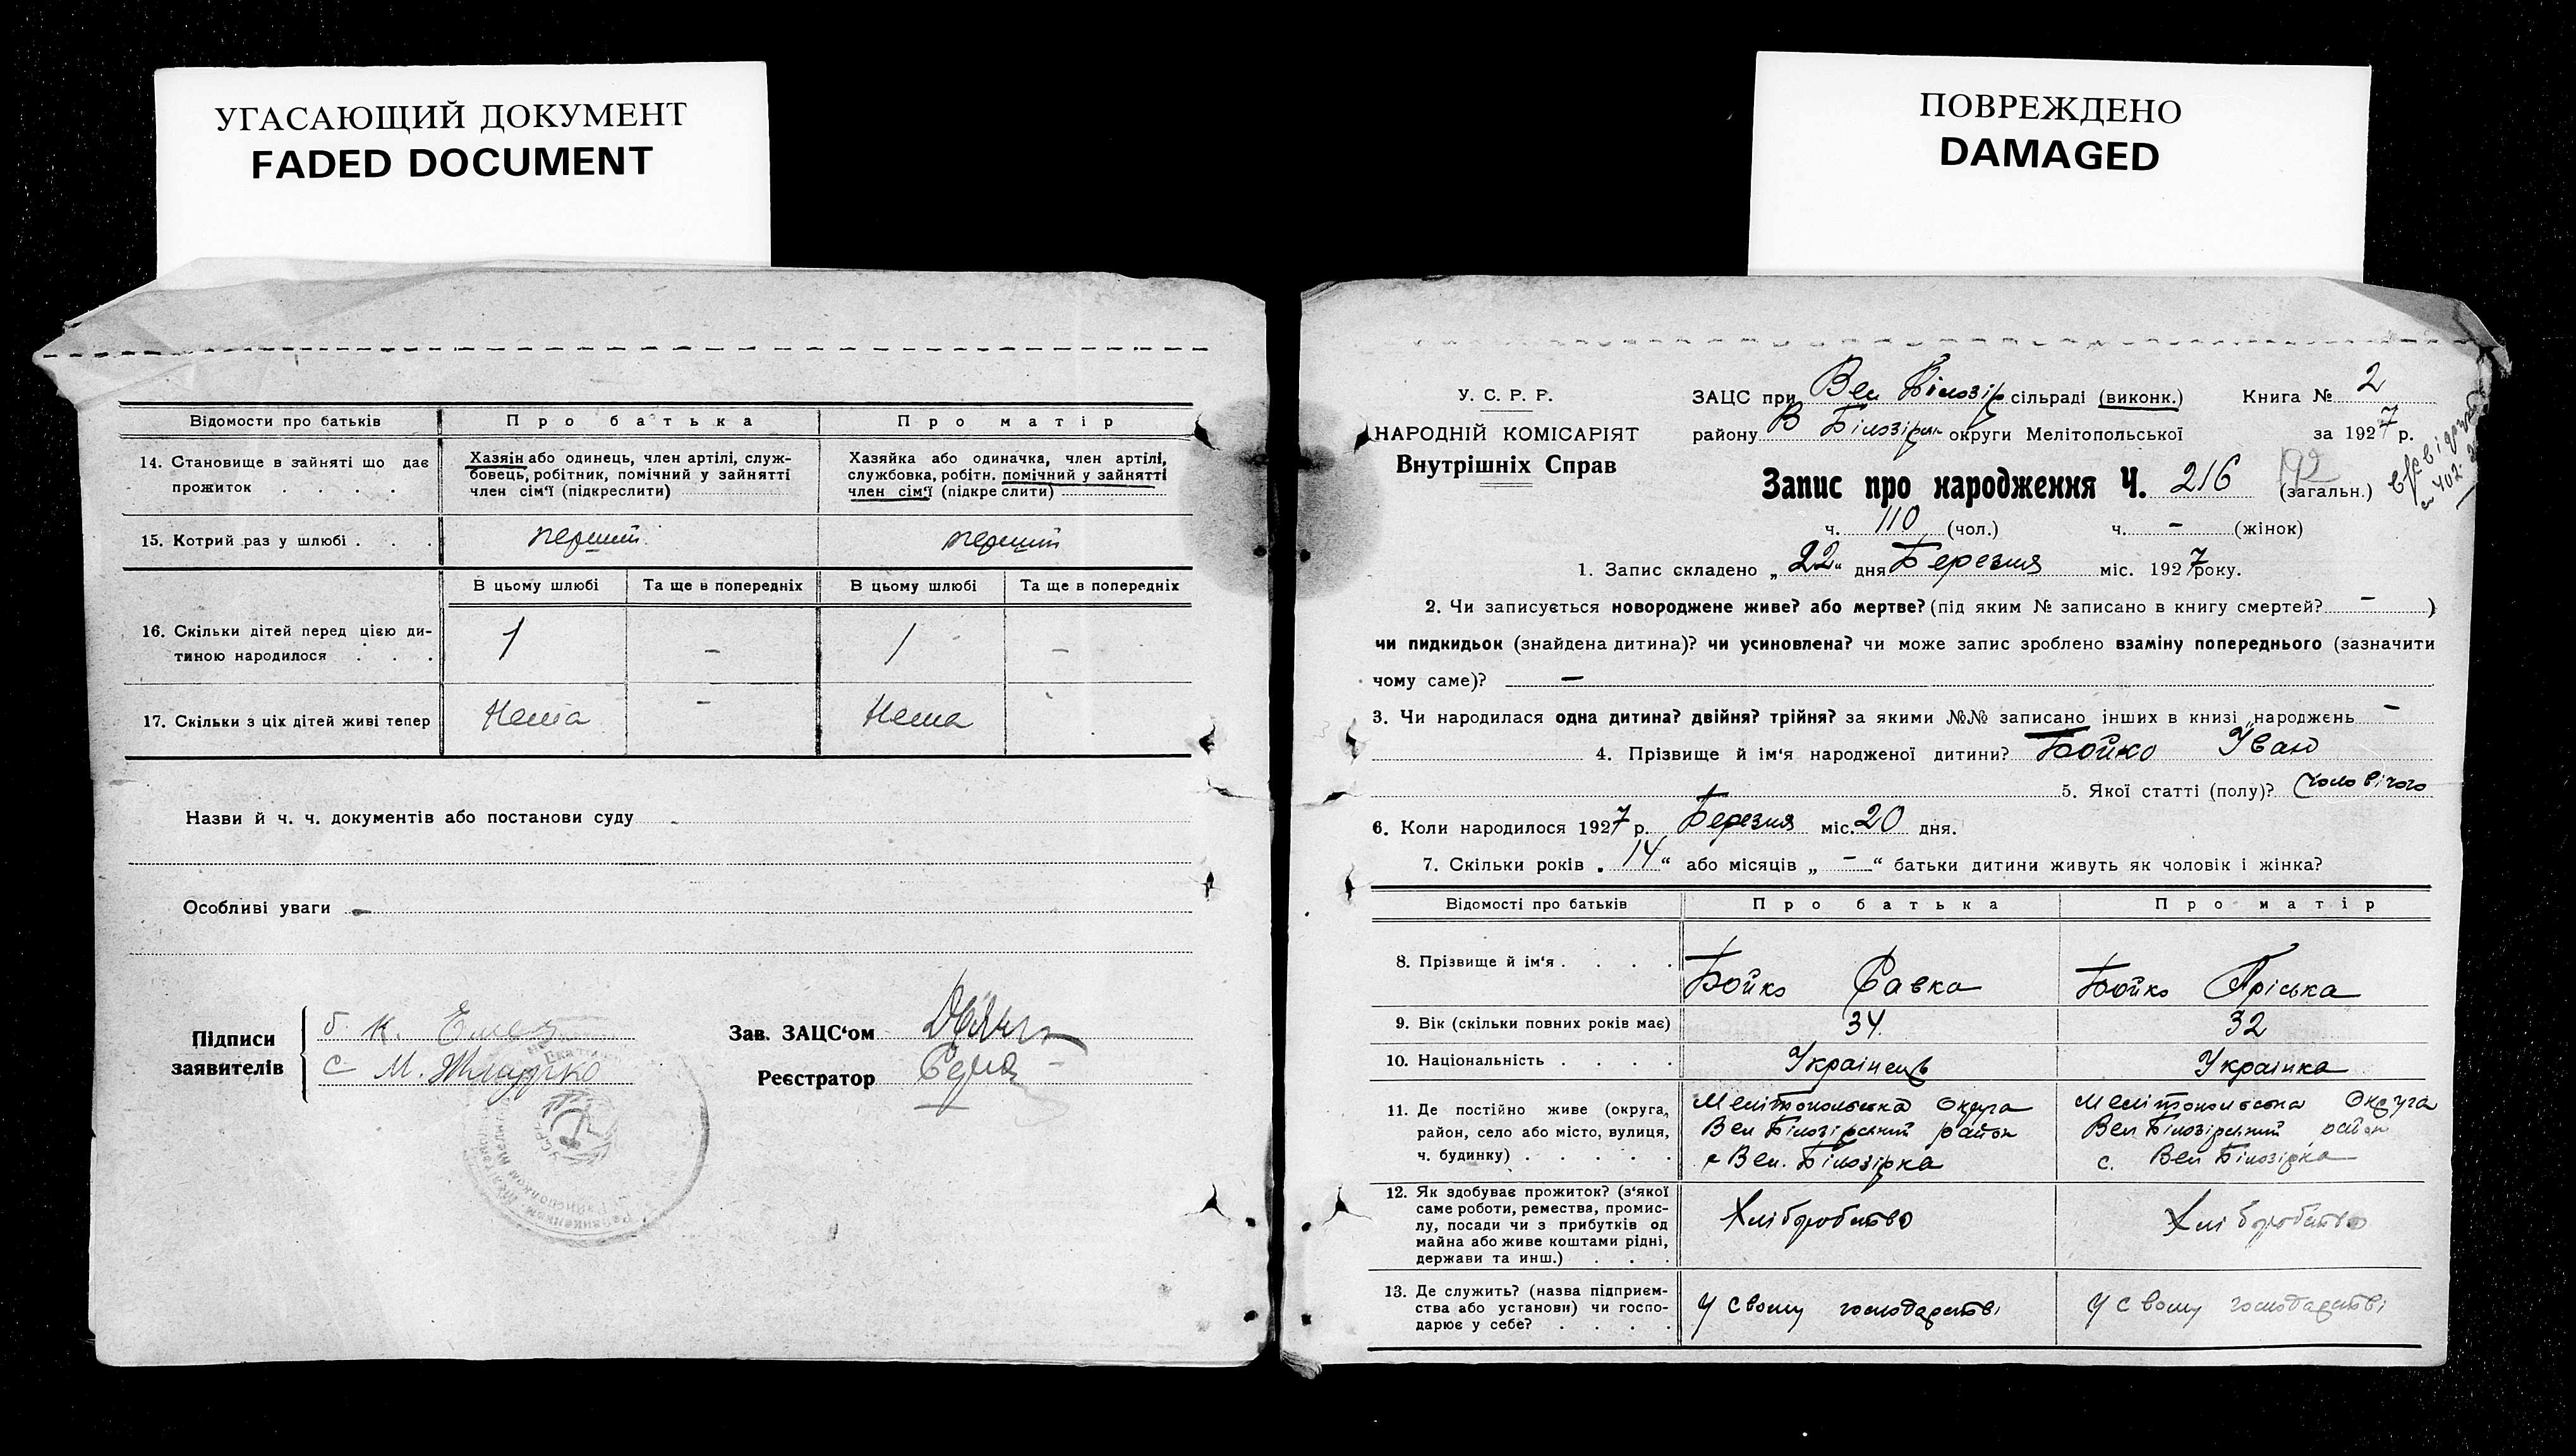 УГАСАЮЩИЙ ДОКУМЕНТ
FADED DOCUMENT
ПОВРЕЖДЕНО
DAMAGED
Відомости про батьків Про батька Про матір
14. Становище в зайняті що дає
прожиток . . . .
Хазяїн або одинець, член артілі, служ-
бовець, робітник, помічний у зайнятті
член сім'ї (підкреслити)
Хазяйка або одиначка, член артілі,
службовка, робітн. помічний у зайнятті
член сім'ї (підкреслити)
15. Котрий раз у шлюбі . . . перший перший
В цьому шлюбі Та ще в попередніх В цьому шлюбі Та ще в попередніх
16. Скільки дітей перед цією ди-
тиною народилося . . . 1 - 1 -
17. Скільки з ціх дітей живі тепер Нема - Нема -
Назви й ч. ч. документів або постанови суду -
Особливі уваги -
Підписи
заявителів
Зав. ЗАЦС'ом
Реєстратор
У. С. Р. Р.
НАРОДНІЙ КОМІСАРІЯТ
Внутрішніх Справ
ЗАЦС при Вел Білозір сільраді (виконк.) Книга № 2
району В Білозірськ округи Мелітопольської за 1927 р.
Запис про народження Ч. 216 (загальн.)
ч. 110 (чол.) ч. - (жінок)
1. Запис складено „22“ дня Березня міс. 1927 року.
2. Чи записується новороджене живе? або мертве? (під яким № записано в книгу смертей? - )
чи пидкидьок (знайдена дитина)? чи усиновлена? чи може запис зроблено взаміну попереднього (зазначити
чому саме)? -
3. Чи народилася одна дитина? двійня? трійня? за якими №№ записано інших в книзі народжень -
4. Прізвище й ім'я народженої дитини? Бойко Іван
5. Якої статті (полу)? Чоловічого
6. Коли народилося 1927 р. Березня міс. 20 дня.
7. Скільки років „14“ або місяців „-“ батьки дитини живуть як чоловік і жінка?
Відомості про батьків Про батька Про матір
8. Прізвище й ім'я . . . . Бойко Савка Бойко Пріська
9. Вік (скільки повних років має) 34 32
10. Національність . . . . Українець Українка
11. Де постійно живе (округа,
район, село або місто, вулиця,
ч. будинку) . . . . .
Мелітопольська Округа
Вел Білозірський район
с Вел. Білозірка
Мелітопольська Округа
Вел Білозірський район
с. Вел Білозірка
12. Як здобуває прожиток? (з'якої
саме роботи, ремества, промис-
лу, посади чи з прибутків од
майна або живе коштами рідні,
держави та инш.) . . .
Хліборобство Хліборобство
13. Де служить? (назва підприєм-
ства або установи) чи госпо-
дарює у себе? . . . .
У свому господарстві У свому господарстві